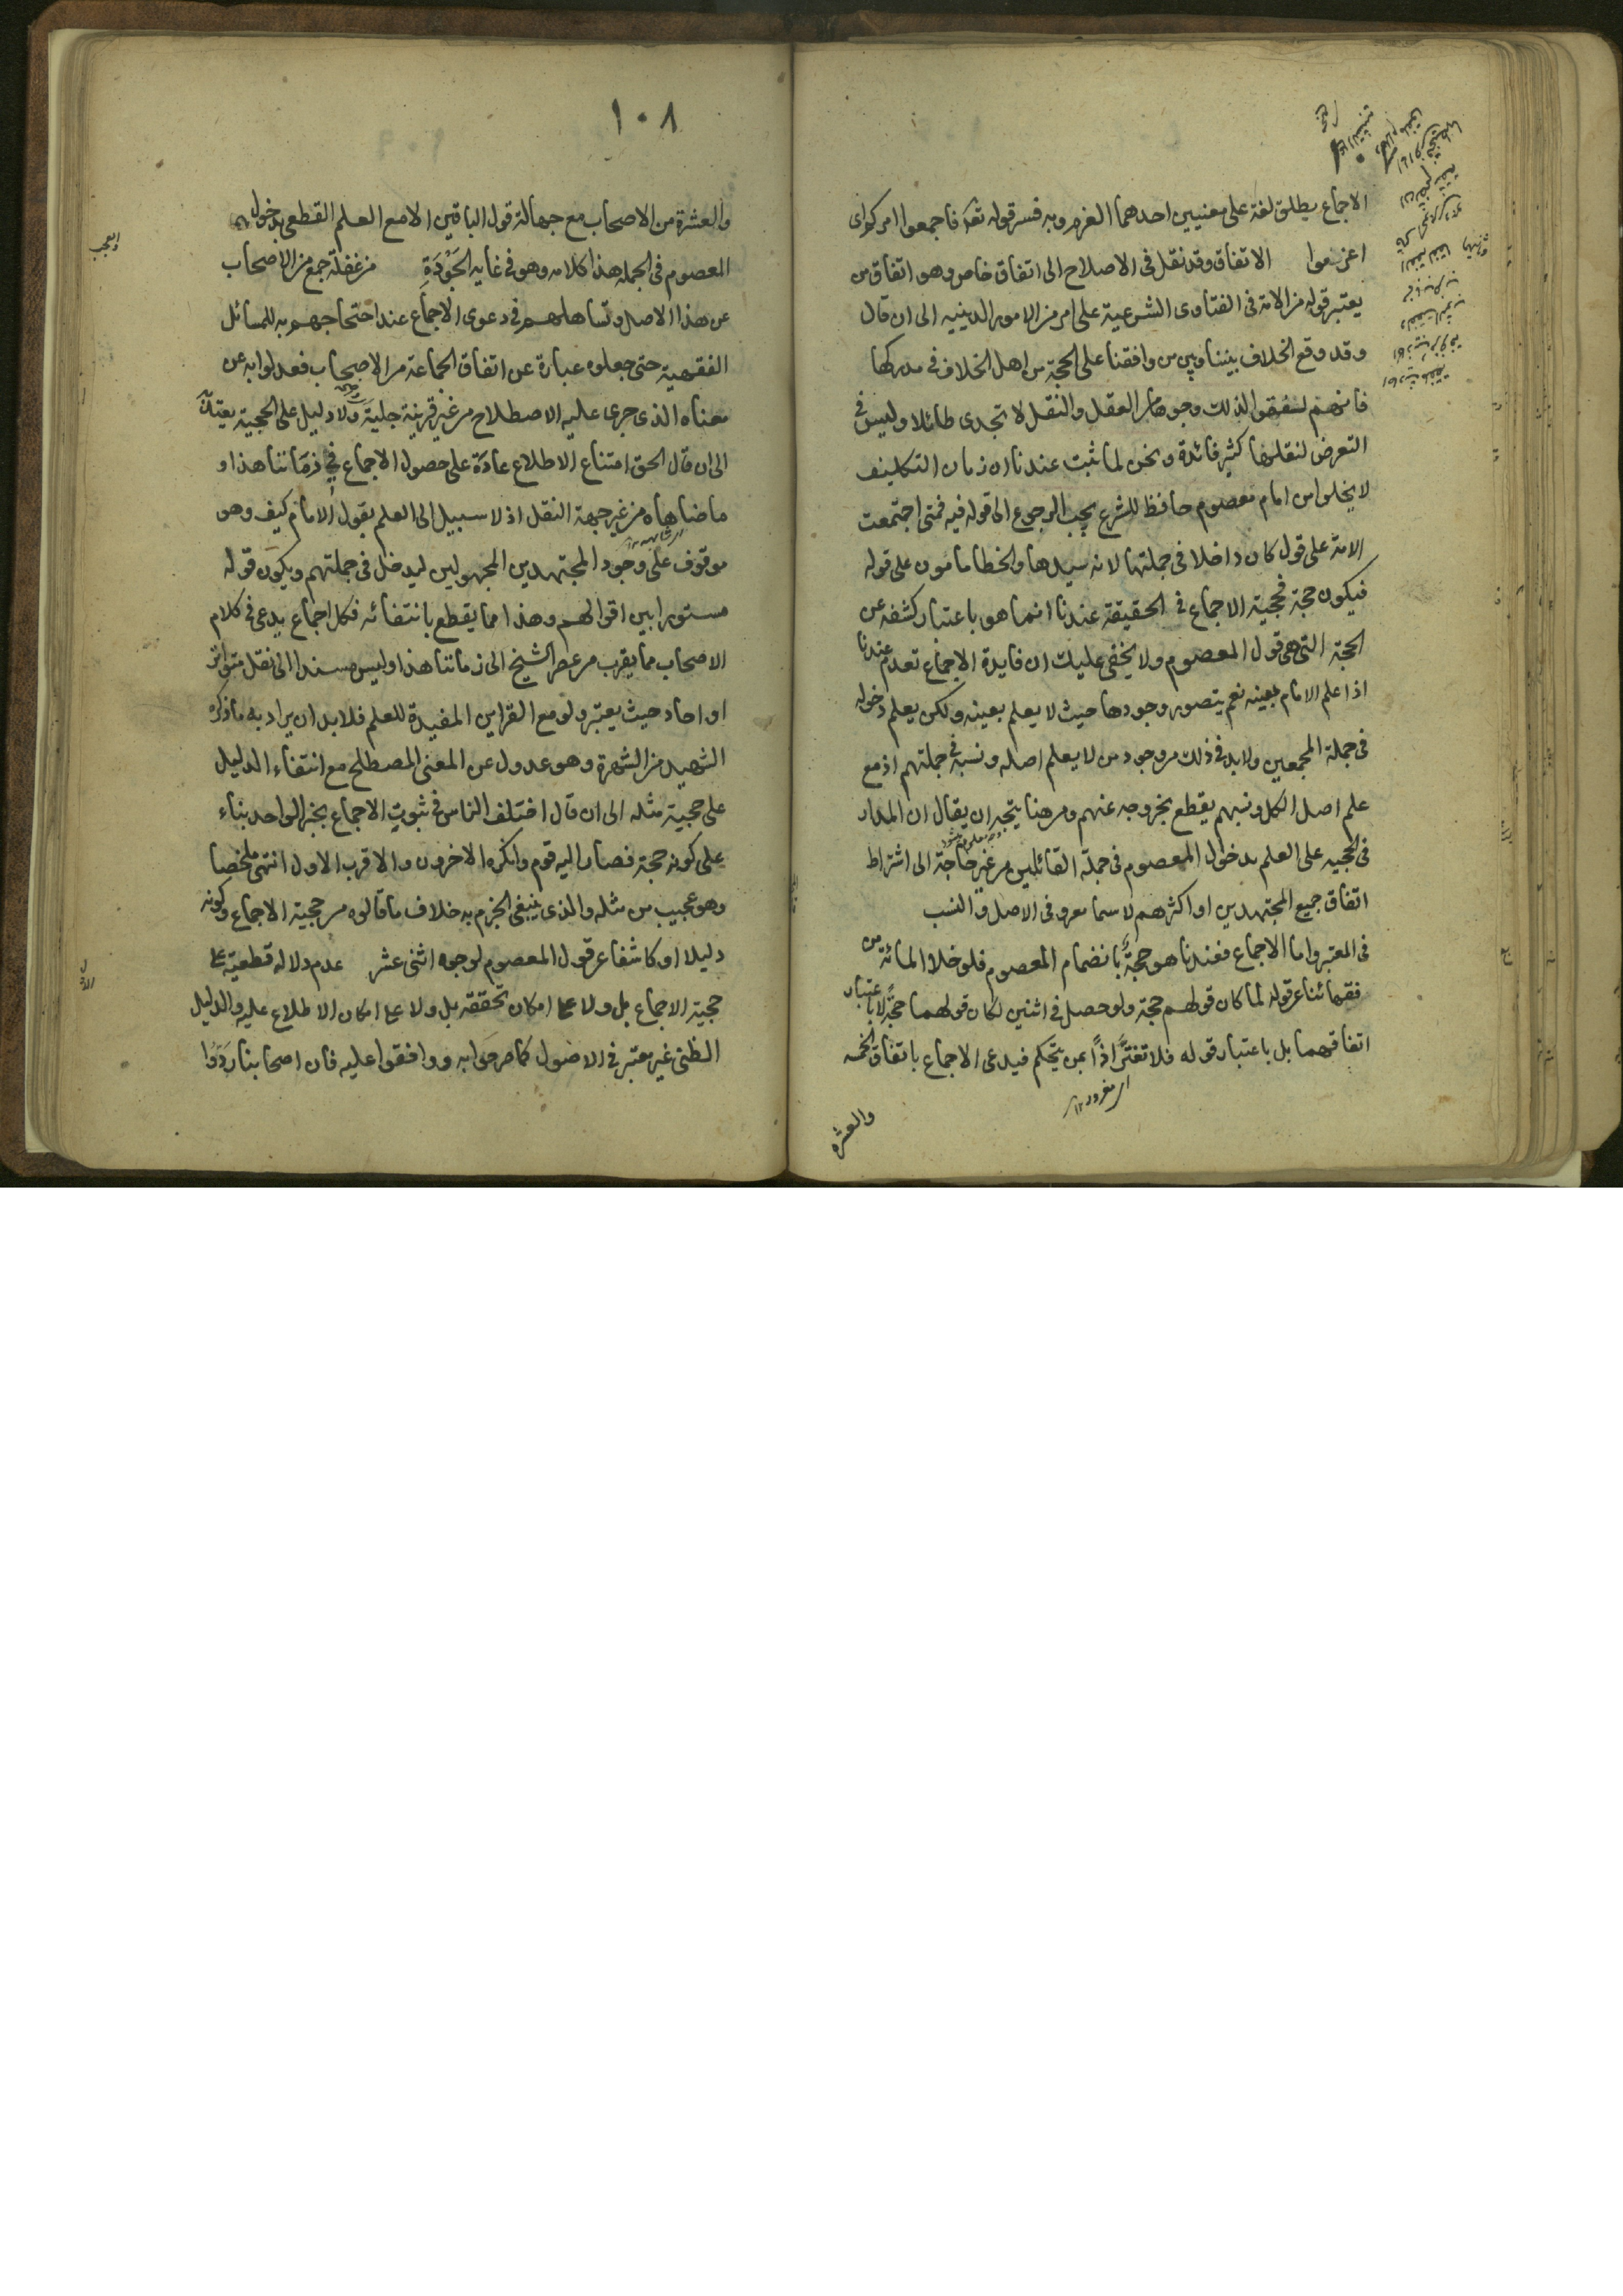 الاجماع يطلق لغة على معنيين احدهما العزم وبه فسر قوله تعه فاجمعوا امركم اى
اعزموا الاتفاق وقد نقل فى الاصلاح الى اتفاق خاص وهو اتفاق من
يعتبر قوله من الامة فى الفتاوى الشرعية على امر من الامور الدينيه الى ان قال
وقد وقع الخلاف بيننا وبين من وافقنا على الحجة من اهل الخلاف فى مدركها
فانهم لفقوا لذلك وجوها من العقل والنقل لا تجدى طائلا وليس فى
التعرض لنقلها كثير فائدة ونحن لما ثبت عندنا ان زمان التكليف
لا يخلو من امام معصوم حافظ للشرع يجب الرجوع الى قوله فيه فمتى اجتمعت
الامة على قول كان داخلا فى جملتها لانه سيدها والخطا مامون على قوله
فيكون حجة فحجية الاجماع فى الحقيقة عندنا انما هو باعتبار كشفه عن
الحجة التى هى قول المعصوم ولا يخفى عليك ان فايدة الاجماع تعدم عندنا
اذا علم الامام بعينه نعم يتصور وجودها حيث لا يعلم بعينه ولكن يعلم دخوله
فى جملة المجمعين ولابد فى ذلك من وجود من لا يعلم اصله ونسبه فى جملتهم اذ مع
علم اصل الكل ونسبهم يقطع بخروجه عنهم ومن هنا يتجه ان يقال ان المدار
فى الحجيه على العلم بدخول المعصوم فى جملة القائلين من غير حاجة الى اشتراط
اتفاق جميع المجتهدين او اكثرهم لا سما معروفى الاصل والنسب
فى المعتبر واما الاجماع فعندنا هو حجةٌ بانضمام المعصوم فلو خلا المائة من
فقهائنا عن قوله لما كان قولهم حجة ولو حصل فى اثنين لكان قولهما حجةً لا باعتبار
اتفاقهما بل باعتبار قوله فلا تغترّ اذاً بمن يتحكم فيدعى الاجماع باتفاق الخمسه
والعشره
١٠٨
والعشرة من الاصحاب مع جهالة قول الباقين الا مع العلم القطعى بدخول
المعصوم فى الجمله هذا كلامه وهو فى غايه الجَوْدَةِ من غفلة جمع من الاصحاب
عن هذا الاصل وتساهلهم فى دعوى الاجماع عند احتجاجهم به للمسائل
الفقهية حتى جعلوه عبارة عن اتفاق الجماعة من الاصحاب فعدلوا به عن
معناه الذى جرى عليه الاصطلاح من غير قرينة جلية ولا دليل على الحجية يعتدّ
الى ان قال الحق امتناع الاطلاع عادة على حصول الاجماع فى زماننا هذا و
ما ضاهاه من غير جهة النقل اذ لا سبيل الى العلم بقول الامام كيف وهو
موقوف على وجود المجتهدين المجهولين ليدخل فى جملتهم ويكون قوله
مستورا بين اقوالهم وهذا مما يقطع بانتفائه فكل اجماع يدعى فى كلام
الاصحاب مما يقرب من عصر الشيخ الى زماننا هذا وليس مسندا الى نقل متواتر
او احاد حيث يعتبر ولو مع القراين المفيدة للعلم فلابد ان يراد به ما ذكره
الشهيد من الشهرة وهو عدول عن المعنى المصطلح مع انتفاء الدليل
على حجية مثله الى ان قال اختلف الناس فى ثبوت الاجماع بخبر الواحد بناء
على كونه حجة فصار اليه قوم وانكره الاخرون والاقرب الاول انتهى ملخصا
وهو عجيب من مثله والذى ينبغى الجزم به خلاف ما قالوه من حجية الاجماع وكونه
دليلا او كاشفا عن قول المعصوم لوجوه اثنى عشر عدم دلاله قطعيّة على
حجية الاجماع بل ولا على امكان تحققه بل ولا على امكان الاطلاع عليه والدليل
الظنى غير معتبر فى الاصول كما صرحوا به ووافقوا عليه فان اصحابنا ردّوا
والعجب